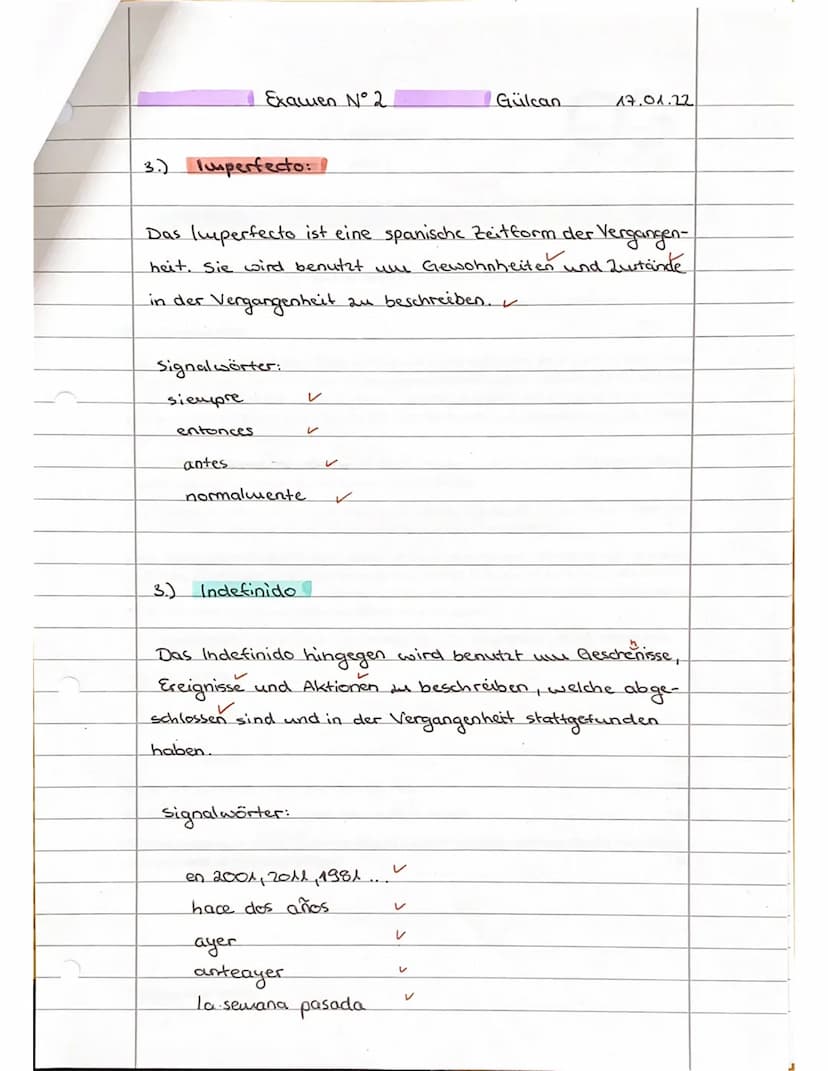 Examen N° 2 Gülcan 17.01.22
3.) Imperfecto:
Das Imperfecto ist eine spanische Zeitform der Vergangen-
heit. Sie wird benutzt um Gewohnheiten und Zustände
in der Vergangenheit zu beschreiben.
Signalwörter:
siempre
entonces
antes
normalmente
3.) Indefinido
h
Das Indefinido hingegen wird benutzt um Geschenisse,
Ereignisse und Aktionen zu beschreiben, welche abge-
schlossen sind und in der Vergangenheit stattgefunden
haben.
Signalwörter:
en 2001, 2011, 1981...
hace dos años
ayer
anteayer
la semana pasada